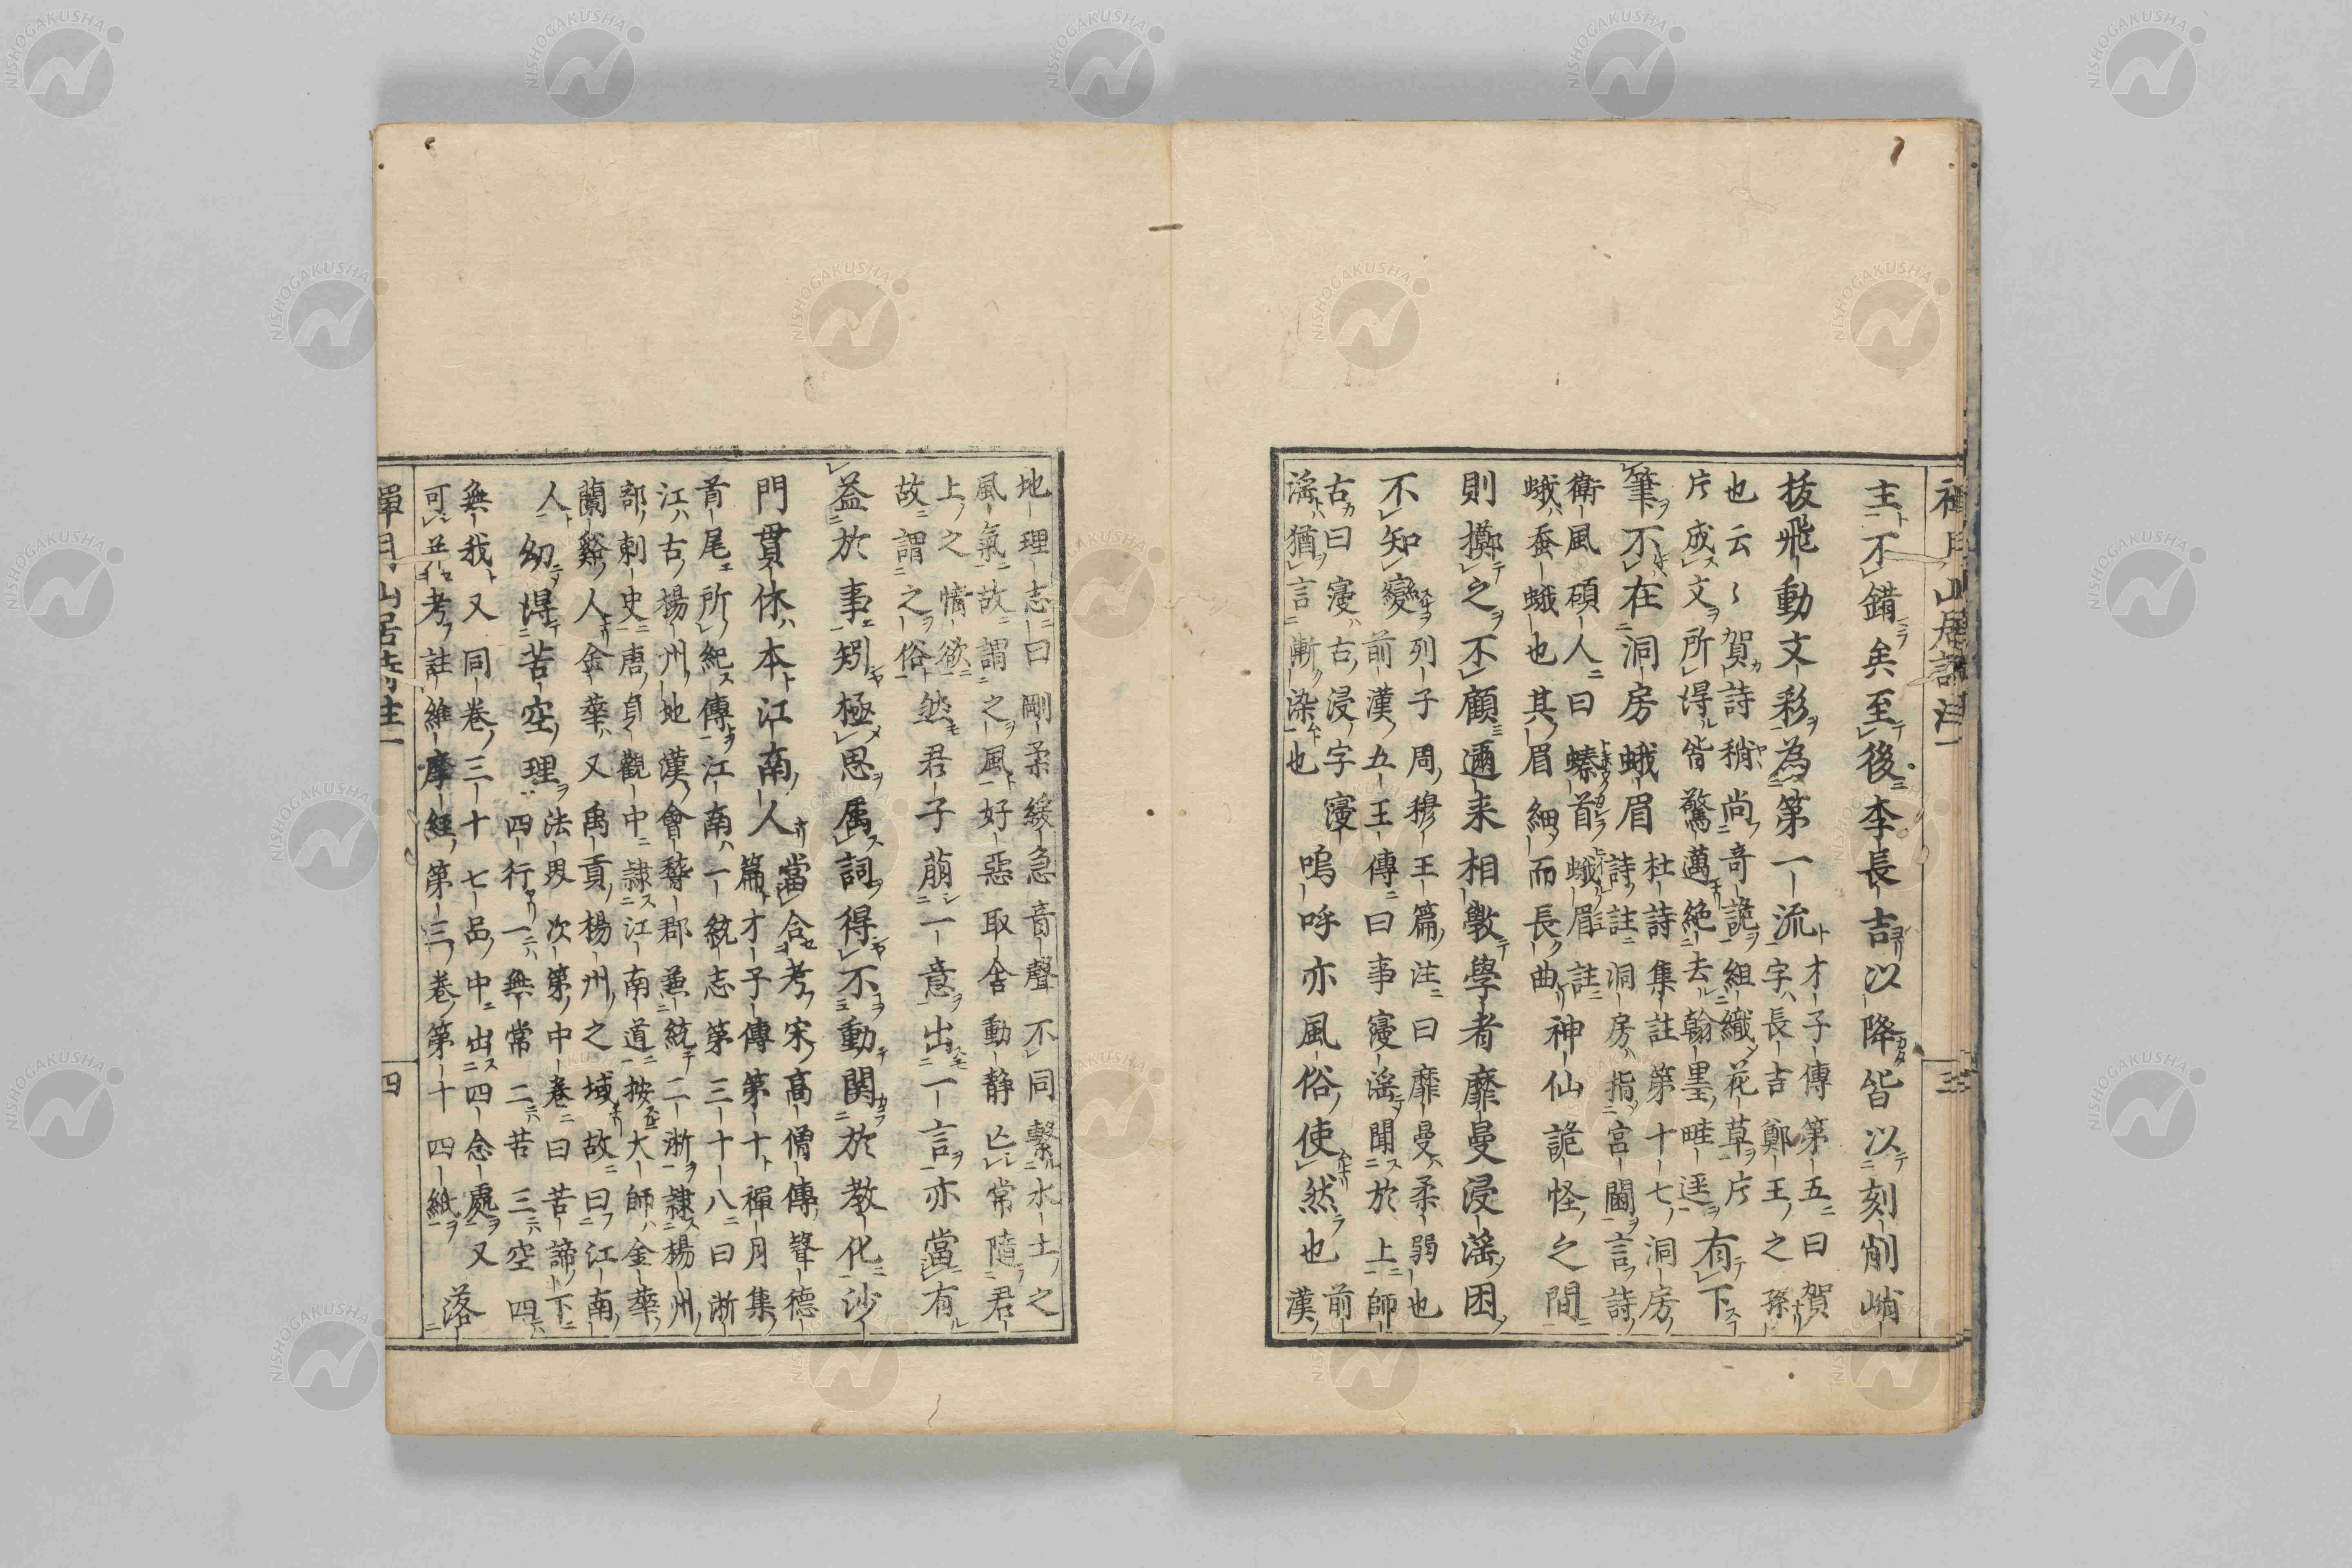 禪月山居詩註一　三
主不錯矣至後李長吉以降皆以刻削峭
拔飛動文彩為第一流
才子傳第五曰賀
字長吉鄭王之孫
也云〻賀詩稍尚奇詭組織花草片
片成文所得皆驚邁絶去翰墨畦逕
有下
筆不在洞房蛾眉
杜詩集註第十七洞房
詩註洞房指宮闈言詩
衛風碩人曰螓首蛾眉註
蛾蚕蛾也其眉細而長曲
神仙詭怪之間
則擲之不顧邇来相斆學者靡曼浸滛困
不知變
列子周穆王篇注曰靡曼柔弱也
前漢五王傳曰事寖滛聞於上師
古曰寖古浸字寖
滛猶言漸染也
嗚呼亦風俗使然也
前
漢
地理志曰剛柔緩急音聲不同繫水土之
風氣故謂之風好惡取舍動静亡常隨君
上之情欲
故謂之俗
然君子萠一意出一言亦當有
益於事矧極思属詞得不動関於教化沙
門貫休本江南人
當合考宋高僧傳聲德
篇才子傳第十禪月集
首尾所紀傳江南一統志第三十八曰浙
江古楊州地漢會稽郡兼統二浙隷楊州
部刺史唐貞觀中隷江南道按大師金華
蘭谿人金華又禹貢楊州之域故曰江南
人
幼得苦空理
法界次第中巻曰苦諦下
四行一無常二苦三空四
無我又同巻三十七品中出四念處又
可并考註維摩經第三巻第十四紙
落
禪月山居詩註一　四